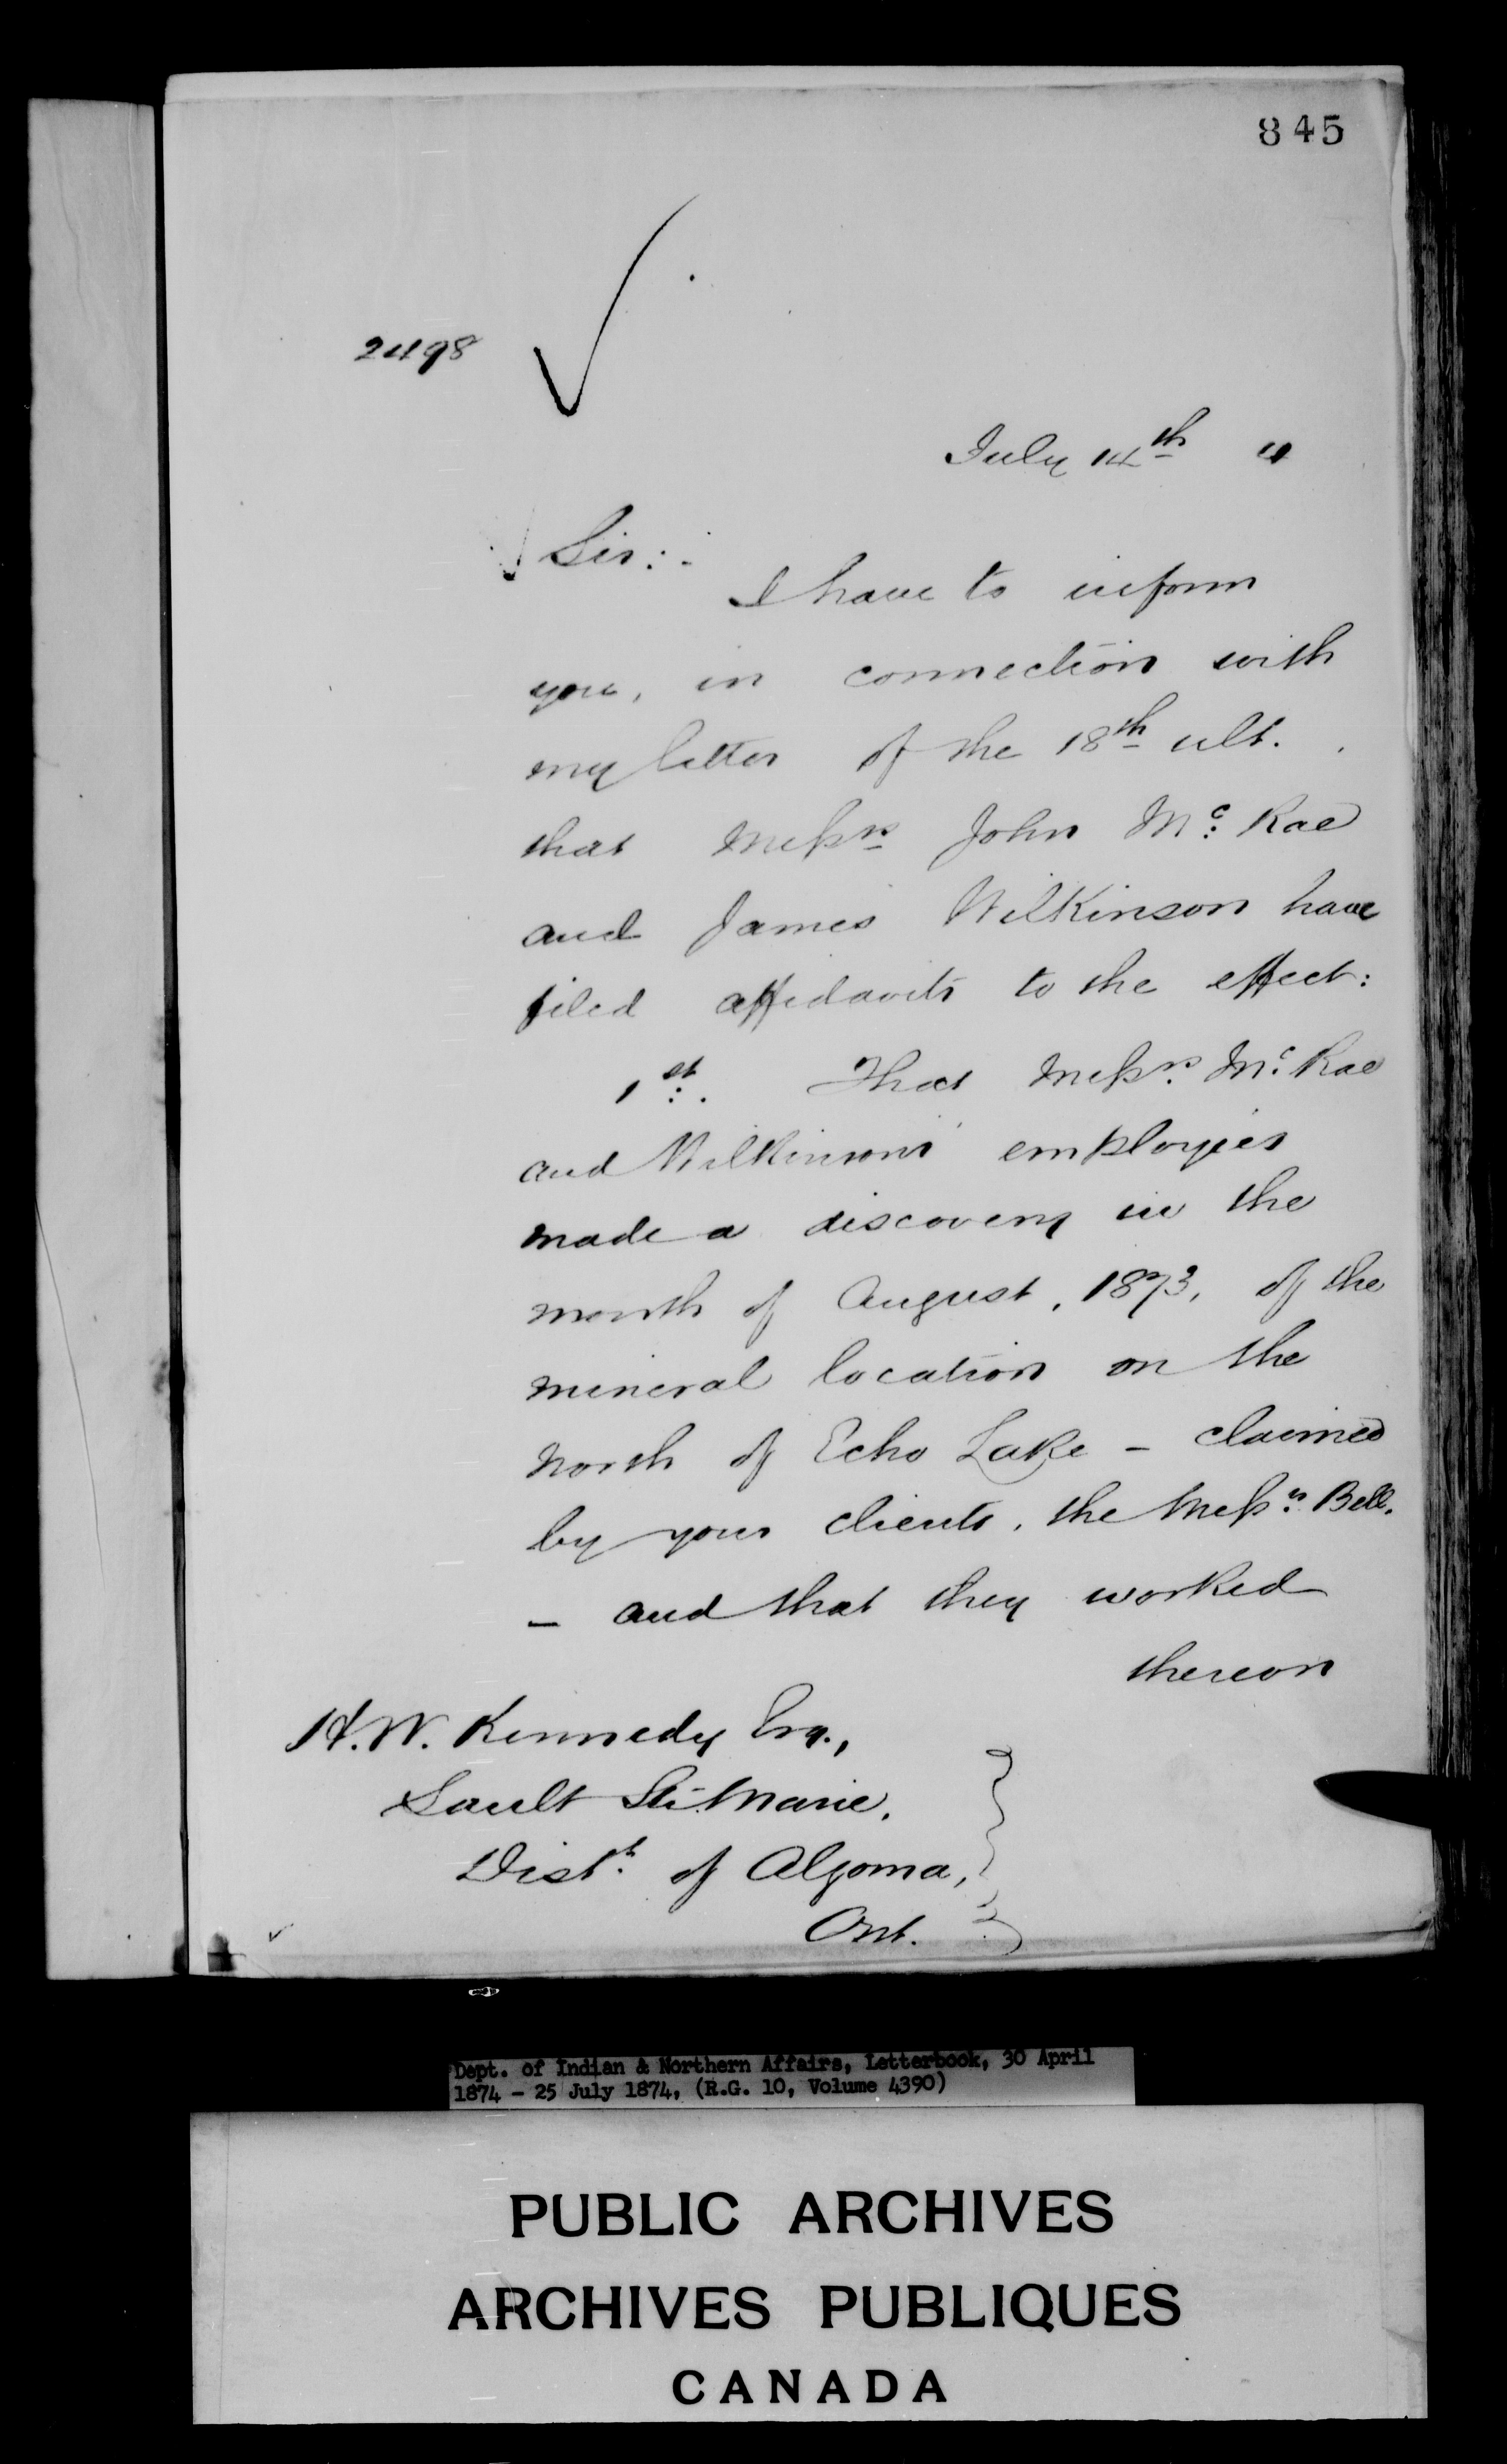 845
2498
July 14th 4
Sir:-
I have to inform
you, in connection with
my letter of the 18th ult.
that Messrs John Mc Rae
and James Wilkinson have
filed affidavits to the effect:
1st. That Messrs. Mc Rae
and Wilkinsons' employees
made a discovery in the
month of August, 1873, of the
mineral location on the
north of Echo Lake - claimed
by your clients, the Messrs. Bell,
- and that they worked
thereon
H.W. Kennedy Esq.,
Sault Ste. Marie,
Distt. of Algoma,
Ont.
Dept. of Indian & Northern Affairs, Letterbook, 30 April
1874 - 25 July 1874, (R.G. 10, Volume 4390)
PUBLIC ARCHIVES
ARCHIVES PUBLIQUES
CANADA